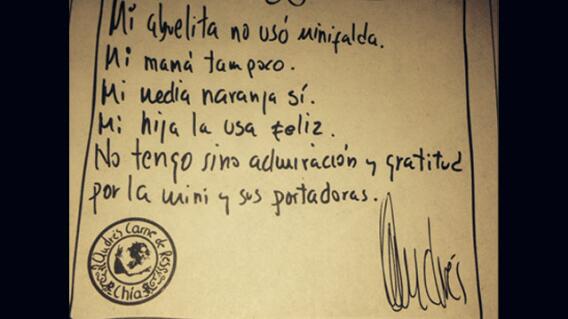 Mi abuelita no usó minifalda.
Mi mamá tampoco.
Mi media naranja sí.
Mi hija la usa feliz.
No tengo sino admiración y gratitud
por la mini y sus portadoras.
Andrés Carne de Res
Chía
Andrés